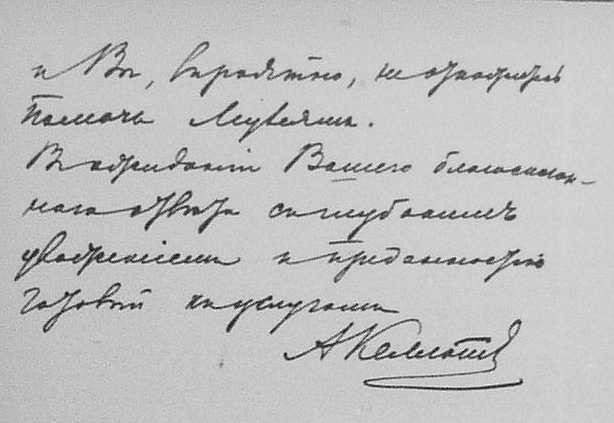 и Вы, вероятно, не откажетесь
помочь
В ожиданіи Вашего благосклон-
наго отвѣта съ глубокимъ
уваженіемъ и преданностью
готовый къ услугамъ